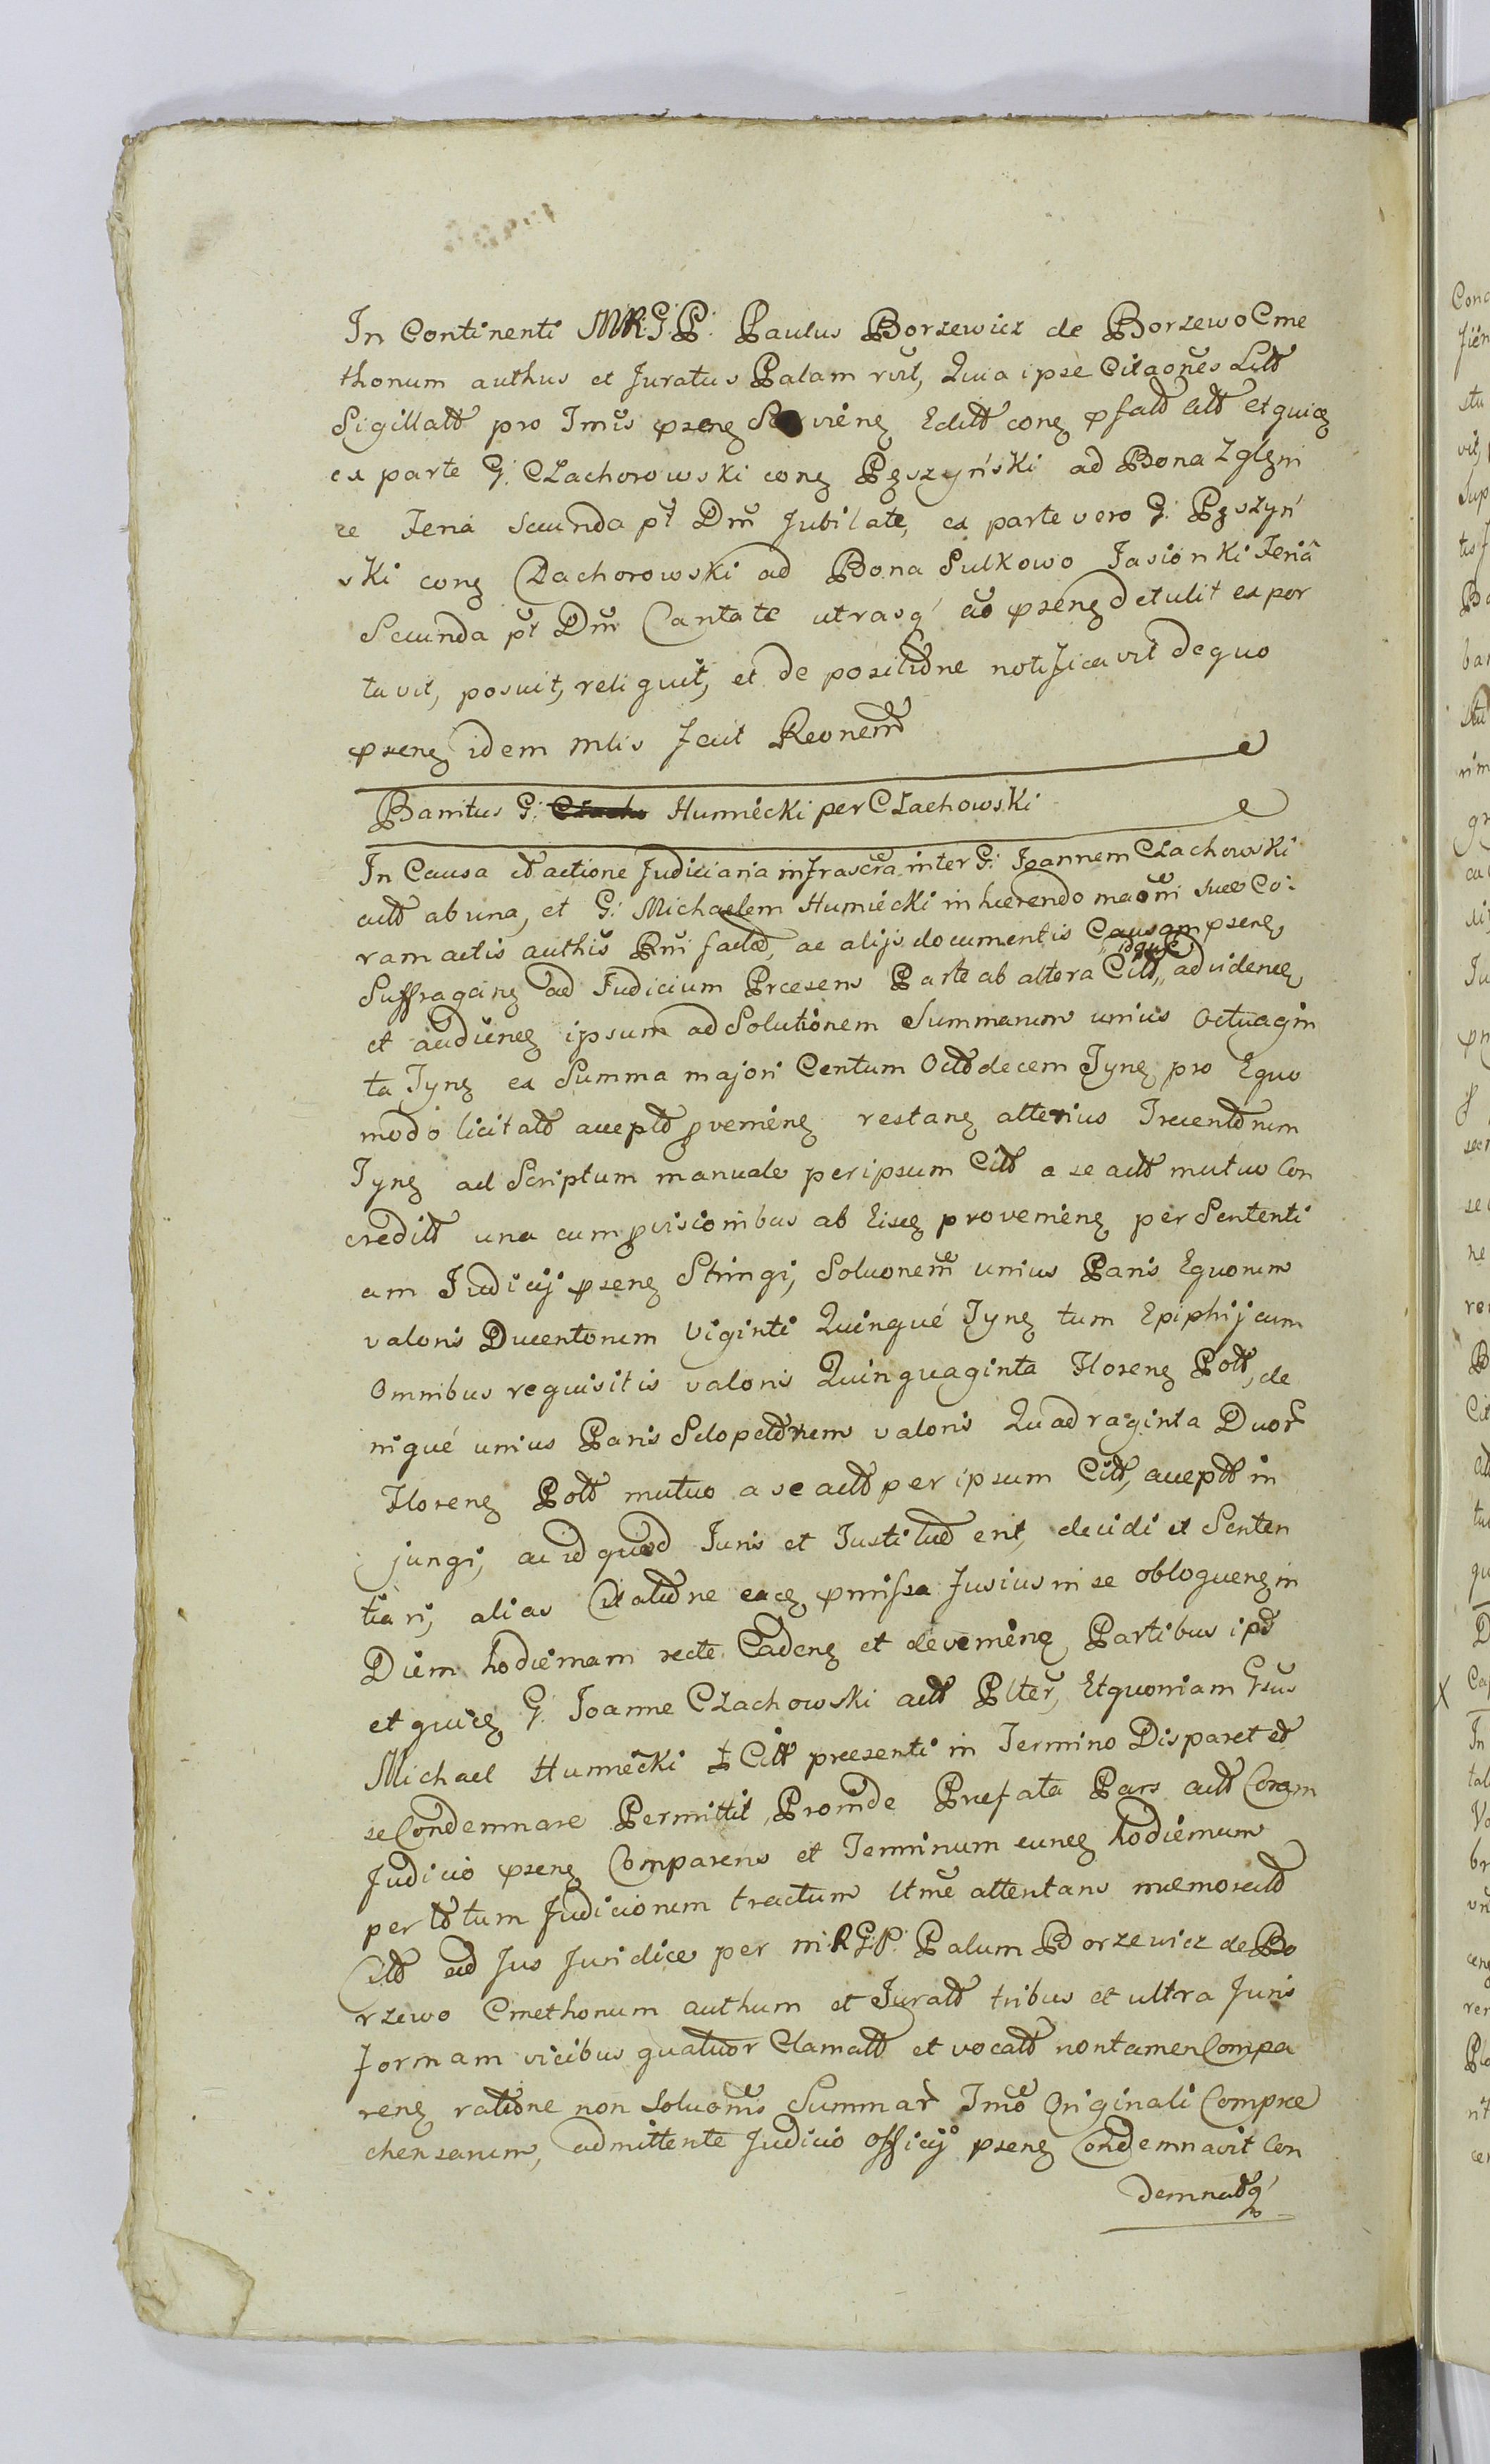 In Continenti MRGP. Paulus Borzewicz de Borzewo Cme
thonum authus et Juratus Palam rŭit, Quia ipse Citaoñes Litt
Sigillatt pro Tmis psenz Servienz Editt conz pfatt Citt et quicz
ex parte G: Czachorowski conz Pęszyński ad Bona Zglęni
ce Feria Secunda pt Dm̃ Jubilate, ex parte vero G: Pęszyń
ski conz Czachorowski ad Bona Sulkowo Jasionki Feriâ
Secunda pt Dm̃ Cantate utrasq́ psenz detulit ex por
tavit, posuit, reliquit, et de positiõne notificavit de quo
psenz idem mlis fecit Reonem̃
Banitus G: Czacho Humiecki per Czachowski
In Causa et actione Judiciaria infrascra inter G: Joannem Czachowski
actt ab una, et G: Michaelem Humiecki inhærendo maom̃ suæ Co:
ram actis authis Rm̃ factæ, ac alijs documentis Causam psenz
Suffraganz ad Judicium Præsens Parte ab altera Citt, idque ad videnz
et audienz ipsum ad Solutionem Summarum unius Octuagin
ta Tynz ex Summa majori Centum Octodecem Tynz pro Equo
modo licitatt acceptt pvenienz restanz alterius Trecentorum
Tynz ad Scriptum manuale per ipsum Citt a se actt mutuo Con
creditt una cum pvisionibus ab Eisez provenienz per Sententi
am Judicij psenz Stringi, Soluonem̃ unius Paris Equorum
valoris Ducentorum Viginti Quinqué Tynz tum Ephiphij cum
Omnibus requisitis valoris Quinquaginta Florenz Pott, de
niqué unius Paris Sclopetorum valoris Quadraginta Duor
Florenz Pott mutuo a se actt per ipsum Citt, acceptt in
jungi, ac id quod Juris et Justitiæ erit, decidi et Senten
tiari, alias Citatione eacz pmissa fusius in se obloquenz in
Diem hodiernam recte Cadenz et devenienz Partibus ipt
et quicz G: Joanne Czachowski actt Plter, Et quoniam Gsus
Michael Humiecki Citt præsenti in Termino Disparet et
se Condemnare Permittit, Proinde Præfata Pars actt Coram
Judicio psenz Comparens et Terminum eunez hodiernum
per totum Judiciorum tractum ltme attentans memoratt
Citt ad Jus Juridice per MRGP: Palum Borzewicz de Bo
rzewo Cmethonum authum et Juratt tribus et ultra Juris
formam vicibus quatuor Clamatt et vocatt non tamen Compa
renz ratione non Soluonis Summar Tmo Originali Compræ
chensarum, admittente Judicio Officij psenz Condemnavit Con
demnatq́